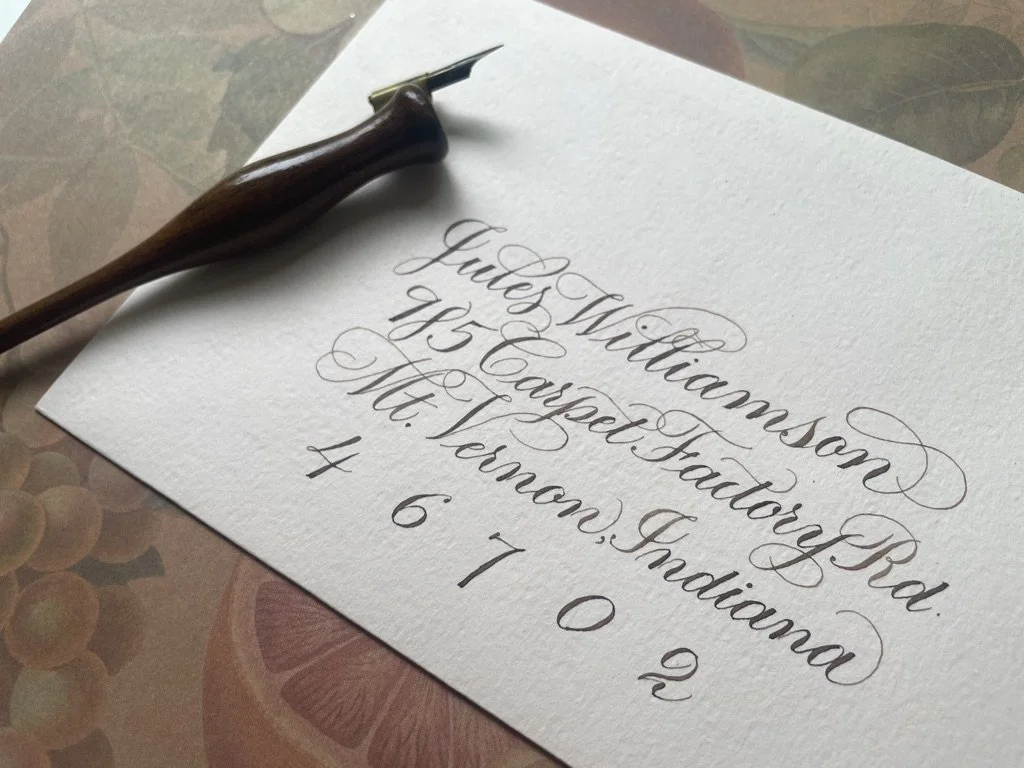 Jules Williamson
985 Carpet Factory Rd.
Mt. Vernon, Indiana
4 6 7 0 2